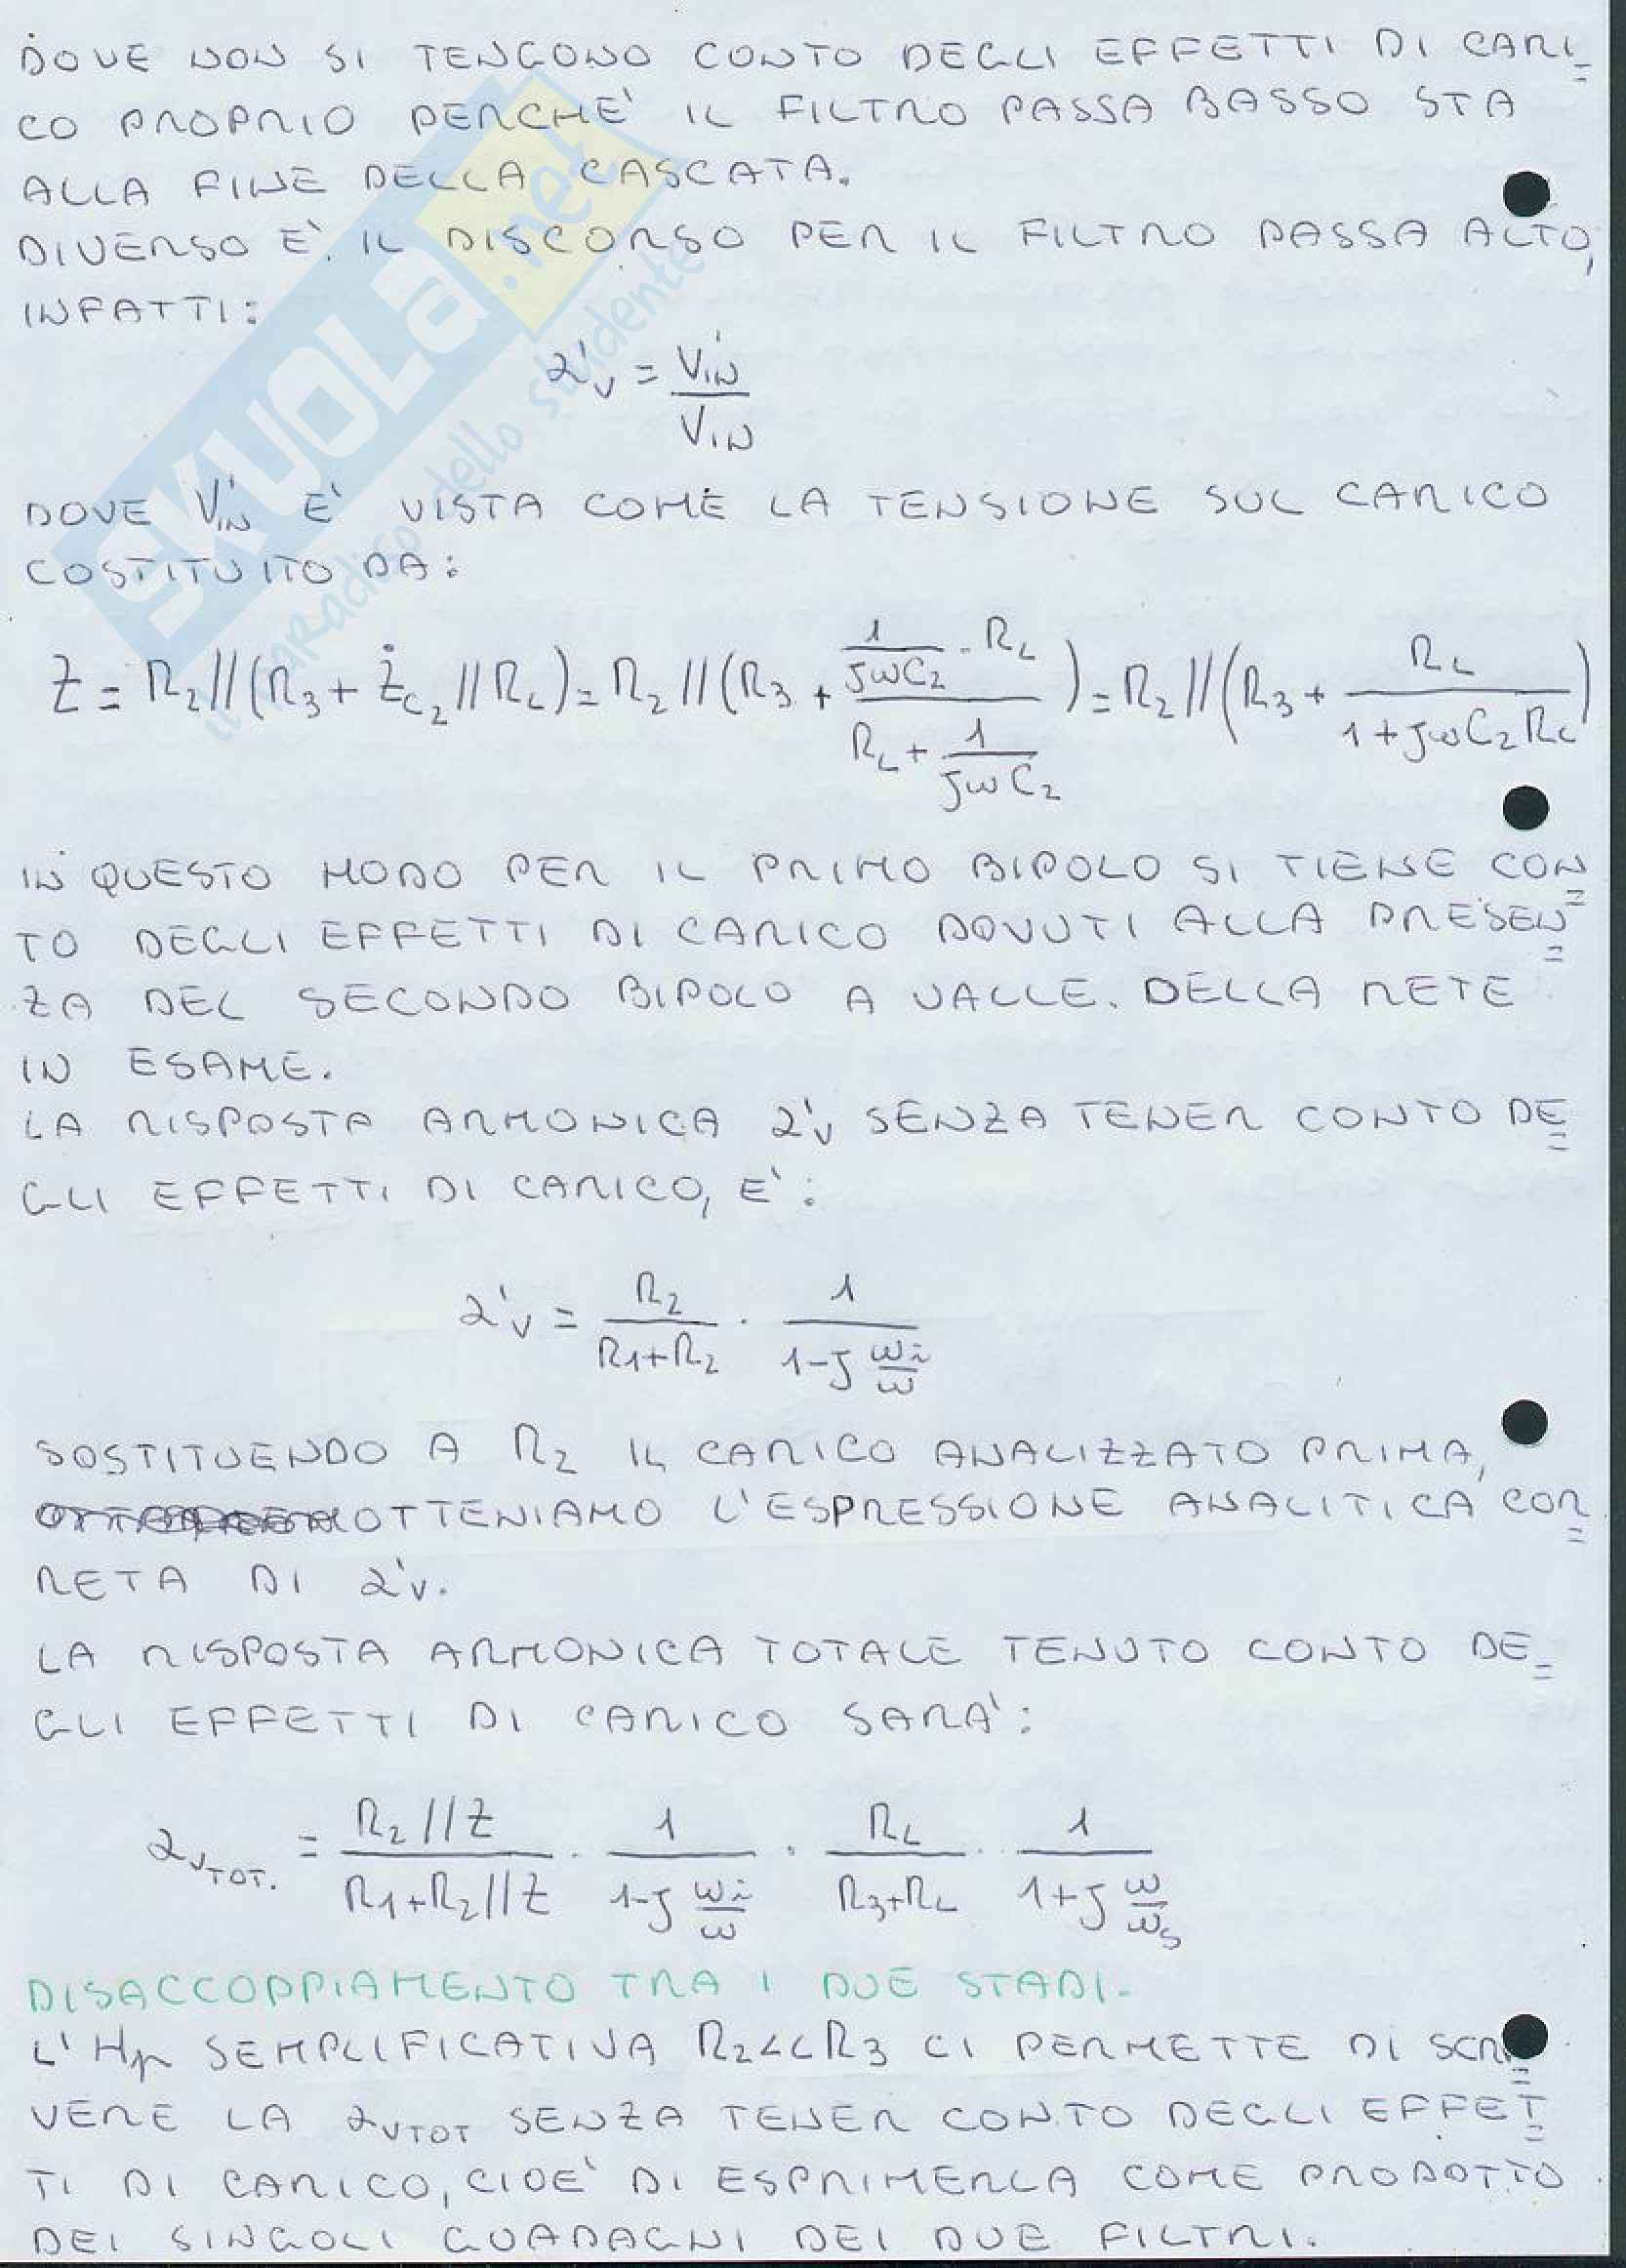 DOVE NON SI TENGONO CONTO DEGLI EFFETTI DI CARI=
CO PROPRIO PERCHE' IL FILTRO PASSA BASSO STA
ALLA FINE DELLA CASCATA.
DIVERSO E' IL DISCORSO PER IL FILTRO PASSA ALTO,
INFATTI:
α'v = V'IN / VIN
DOVE V'IN E' VISTA COME LA TENSIONE SUL CARICO
COSTITUITO DA:
Z = R2 // (R3 + ŻC2 // RL) = R2 // (R3 + (1/(jωC2) · RL) / (RL + 1/(jωC2))) = R2 // (R3 + RL / (1 + jωC2RL))
IN QUESTO MODO PER IL PRIMO BIPOLO SI TIENE CON=
TO DEGLI EFFETTI DI CARICO DOVUTI ALLA PRESEN=
ZA DEL SECONDO BIPOLO A VALLE. DELLA RETE
IN ESAME.
LA RISPOSTA ARMONICA α'v SENZA TENER CONTO DE=
GLI EFFETTI DI CARICO, E':
α'v = R2 / (R1+R2) · 1 / (1-j ωi/ω)
SOSTITUENDO A R2 IL CARICO ANALIZZATO PRIMA,
OTTENIAMO L'ESPRESSIONE ANALITICA COR=
RETA DI α'v.
LA RISPOSTA ARMONICA TOTALE TENUTO CONTO DE=
GLI EFFETTI DI CARICO SARA':
αvTOT. = R2//Z / (R1+R2//Z) · 1 / (1-j ωi/ω) · RL / (R3+RL) · 1 / (1+j ω/ωs)
DISACCOPPIAMENTO TRA I DUE STADI.
L'Hp SEMPLIFICATIVA R2<<R3 CI PERMETTE DI SCRI=
VERE LA αVTOT SENZA TENER CONTO DEGLI EFFET=
TI DI CARICO, CIOE' DI ESPRIMERLA COME PRODOTTO
DEI SINGOLI GUADAGNI DEI DUE FILTRI.
SKUOLA.net
il paradiso dello studente